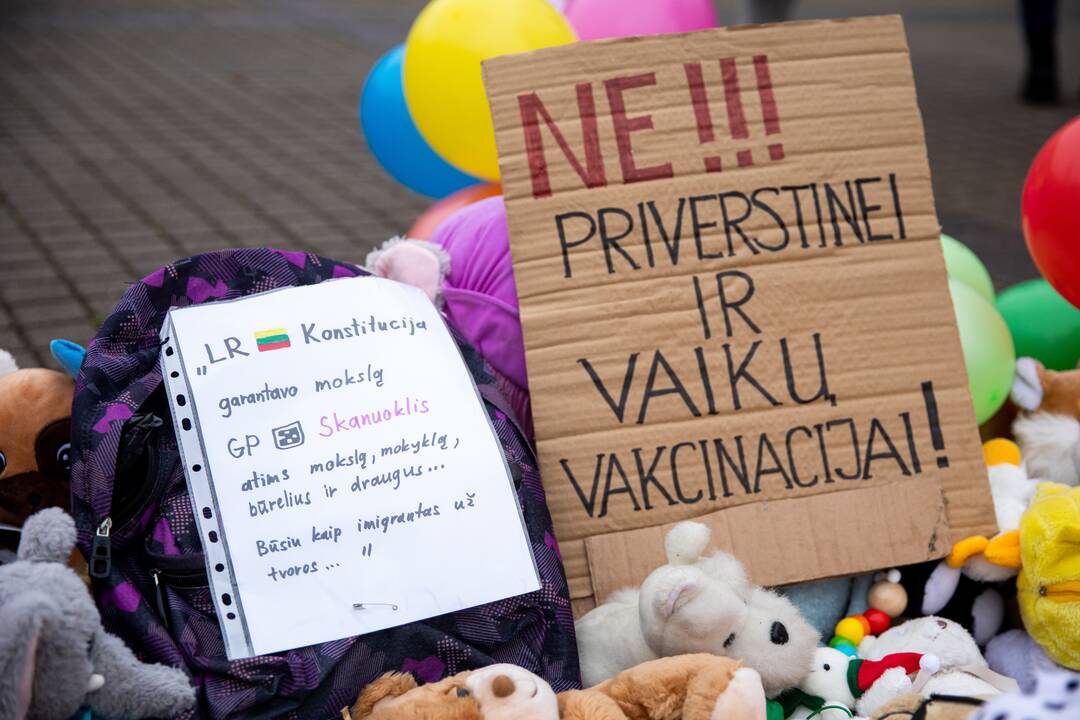 „LR Konstitucija
garantavo mokslą
GP Skanuoklis
atims mokslą, mokyklą,
būrelius ir draugus...
Būsiu kaip imigrantas už
tvoros... "
NE!!!
PRIVERSTINEI
IR
VAIKŲ
VAKCINACIJAI!